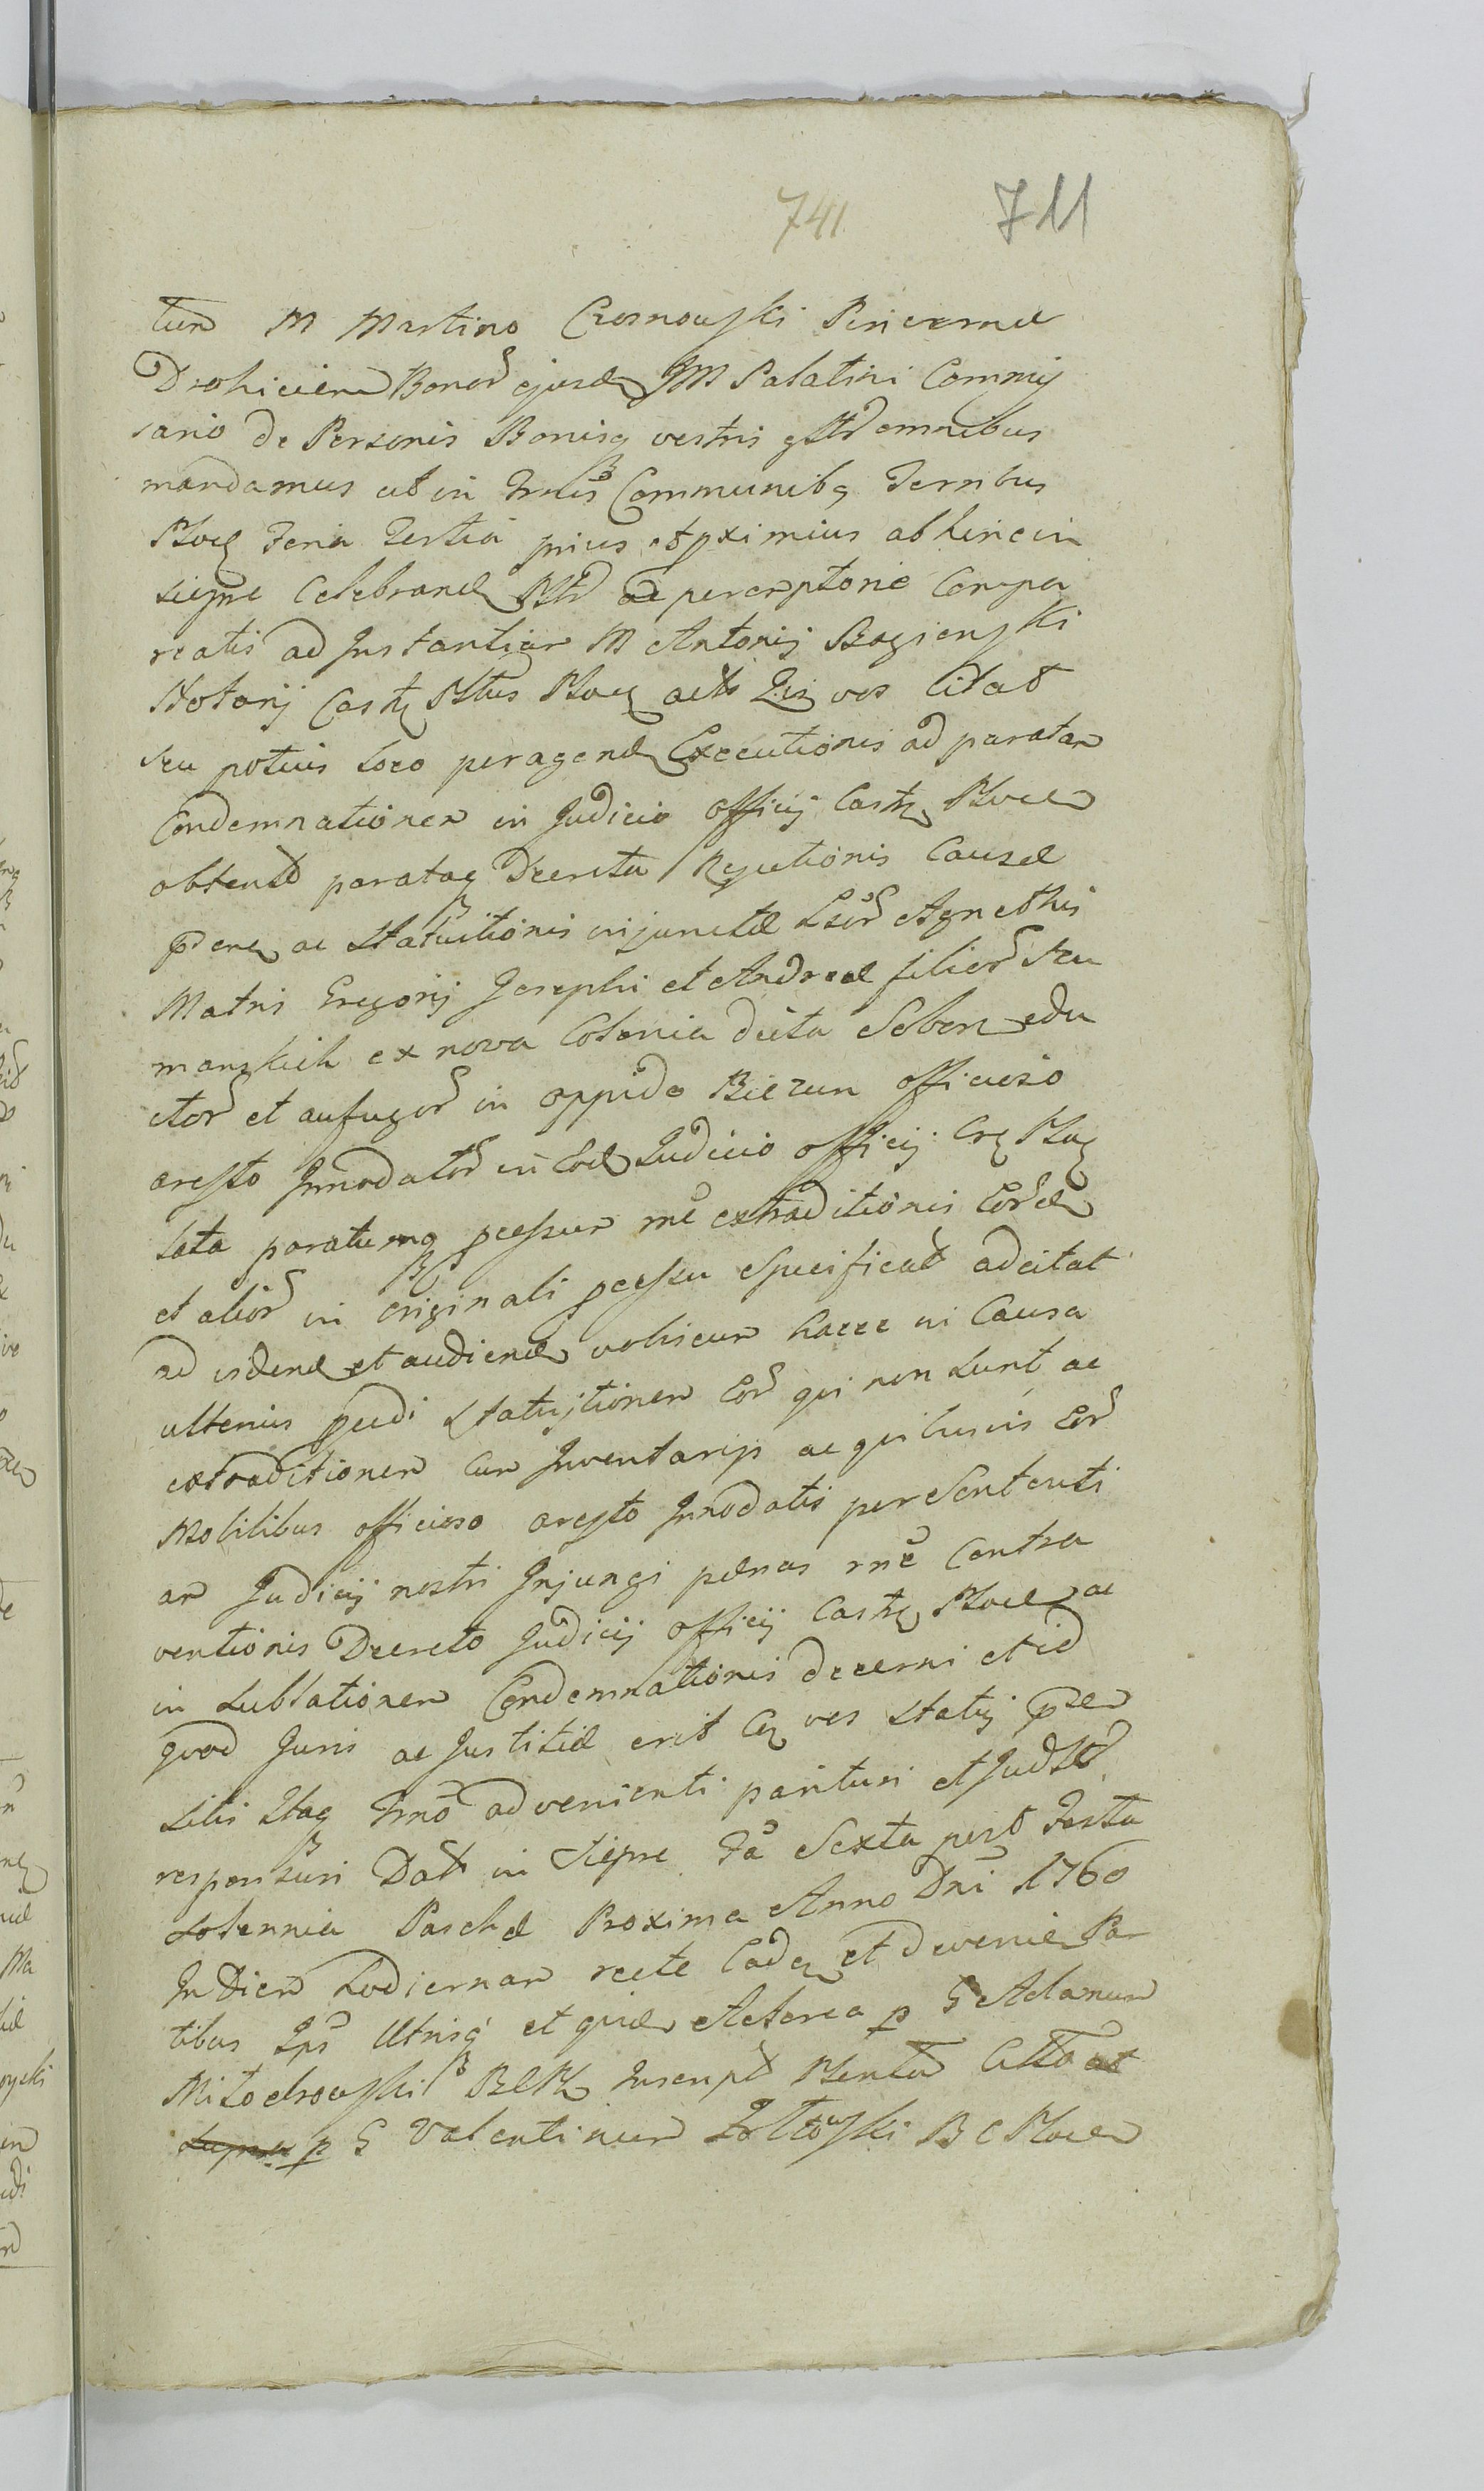 741 711
tum M Martino Czosnowski Pincernæ
Drohicien Bonor ejusd JM Palatini Commis
sario de Personis Bonisq vestris omnibus
mandamus ut in Trnis Communibq Terribus
Ploc Feria Tertia prius et pximius abhinc in
Sieprc Celebrand ac peremptorie Compa
reatis ad Instantiam M Antonij Bogienski
Notarij Castr Ploc actis Qui vos citat
seu potius loco peragend Executionis ad paratam
Condemnationem in Judicio Officij Castr Plocen
obtent parataq Decreta Rejectionis Causæ
ac Statuitionis injunctæ Agnethis
Matris Gregorij Josephi et Andreæ filior seu
manskich ex nova Colonia dicta Soben edu
ctor et aufugor in oppido Biezun officioso
aresto Innodator in Eod Judicio officij Cas Ploc
lata paratumq pcessum rne extraditionis Eord
et alior in originali pcessu Specificat adcitat
ad vidend et audiend vobiscum haece in Causa
ulterius pcedi Statuitionem Eor qui non sunt ac
extraditionem cum Inventarijs ac quibusvis Eor
Mobilibus officioso aresto Innodatis per Sententi
am Judicij nostri Injungi pænas rne Contra
ventionis Decreto Judicij Officij Castr Plocen ac
in Sublationem Condemnationis decerni et id
quod Juris ac Justitiæ erit
Sitis Itaq Trno advenienti parituri et Jud
responsuri Dat in Sieprc Fa Sexta post Festa
Solennia Paschæ Proxima Anno Dni 1760
In Diem hodiernam recte Cad et devenien Par
tibus Ips Utrisq et quid Actorea p G Adamum
Milodrowski
p G Valentinum Zoltowski B C Plocen